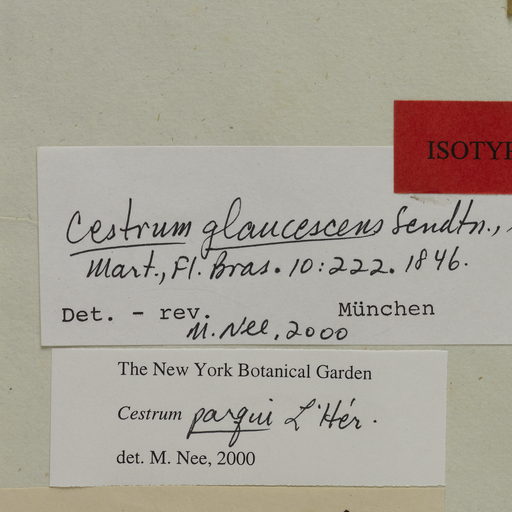 ISOTYP
Cestrum glaucescens Sendtn.,
Mart., Fl. Bras. 10:222. 1846.
Det. - rev. München
M. Nee, 2000
The New York Botanical Garden
Cestrum parqui L'Hér.
det. M. Nee, 2000